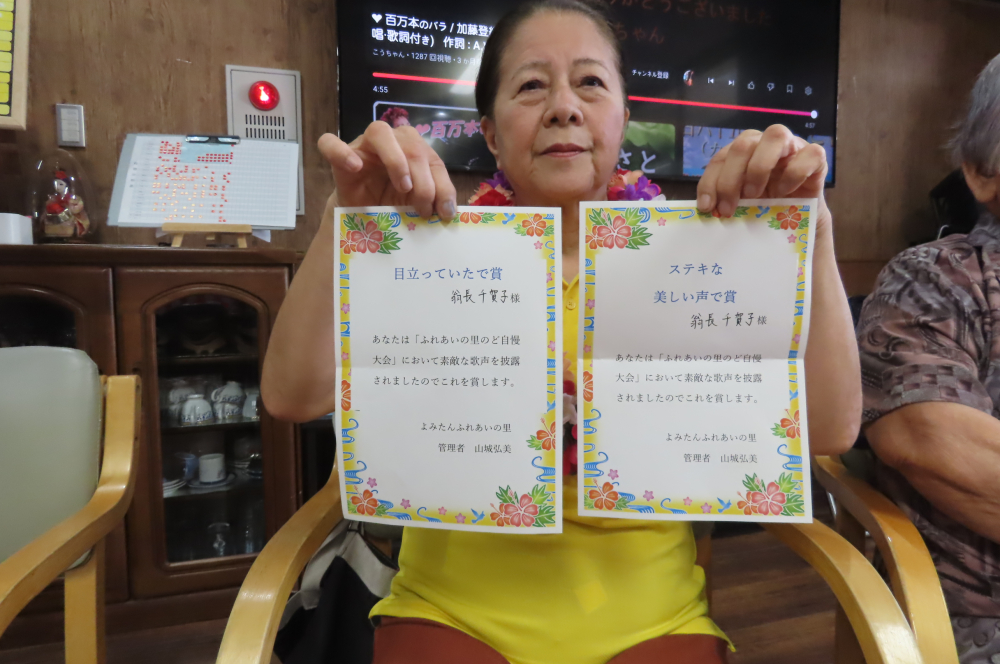 ♥ 百万本のバラ / 加藤登
唱・歌詞付き） 作詞：A.
こうちゃん・1287 回視聴・3
チャンネル登録
4:55
4:57
百万本
さと
ございました
ちゃん
目立っていたで賞
翁長千賀子様
あなたは「ふれあいの里のど自慢
大会」において素敵な歌声を披露
されましたのでこれを賞します。
よみたんふれあいの里
管理者 山城弘美
ステキな
美しい声で賞
翁長千賀子様
あなたは「ふれあいの里のど自慢
大会」において素敵な歌声を披露
されましたのでこれを賞します。
よみたんふれあいの里
管理者 山城弘美